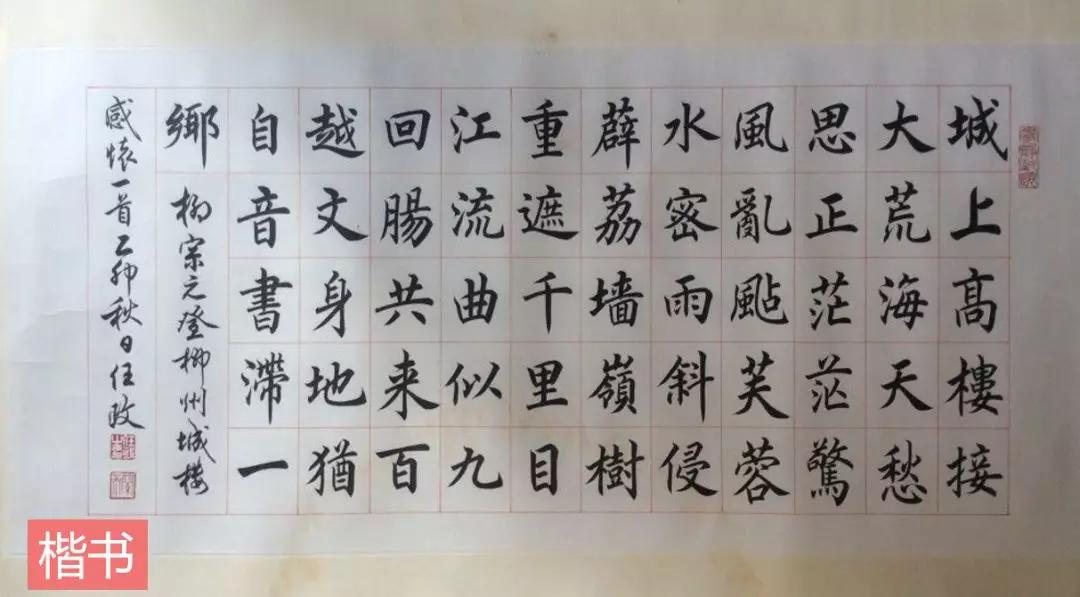 城上高樓接
大荒海天愁
思正茫茫驚
風亂颭芙蓉
水密雨斜侵
薜荔墙嶺樹
重遮千里目
江流曲似九
回腸共来百
越文身地猶
自音書滞一
鄉
柳宗元登柳州城楼
感懐一首乙卯秋日任政
楷书